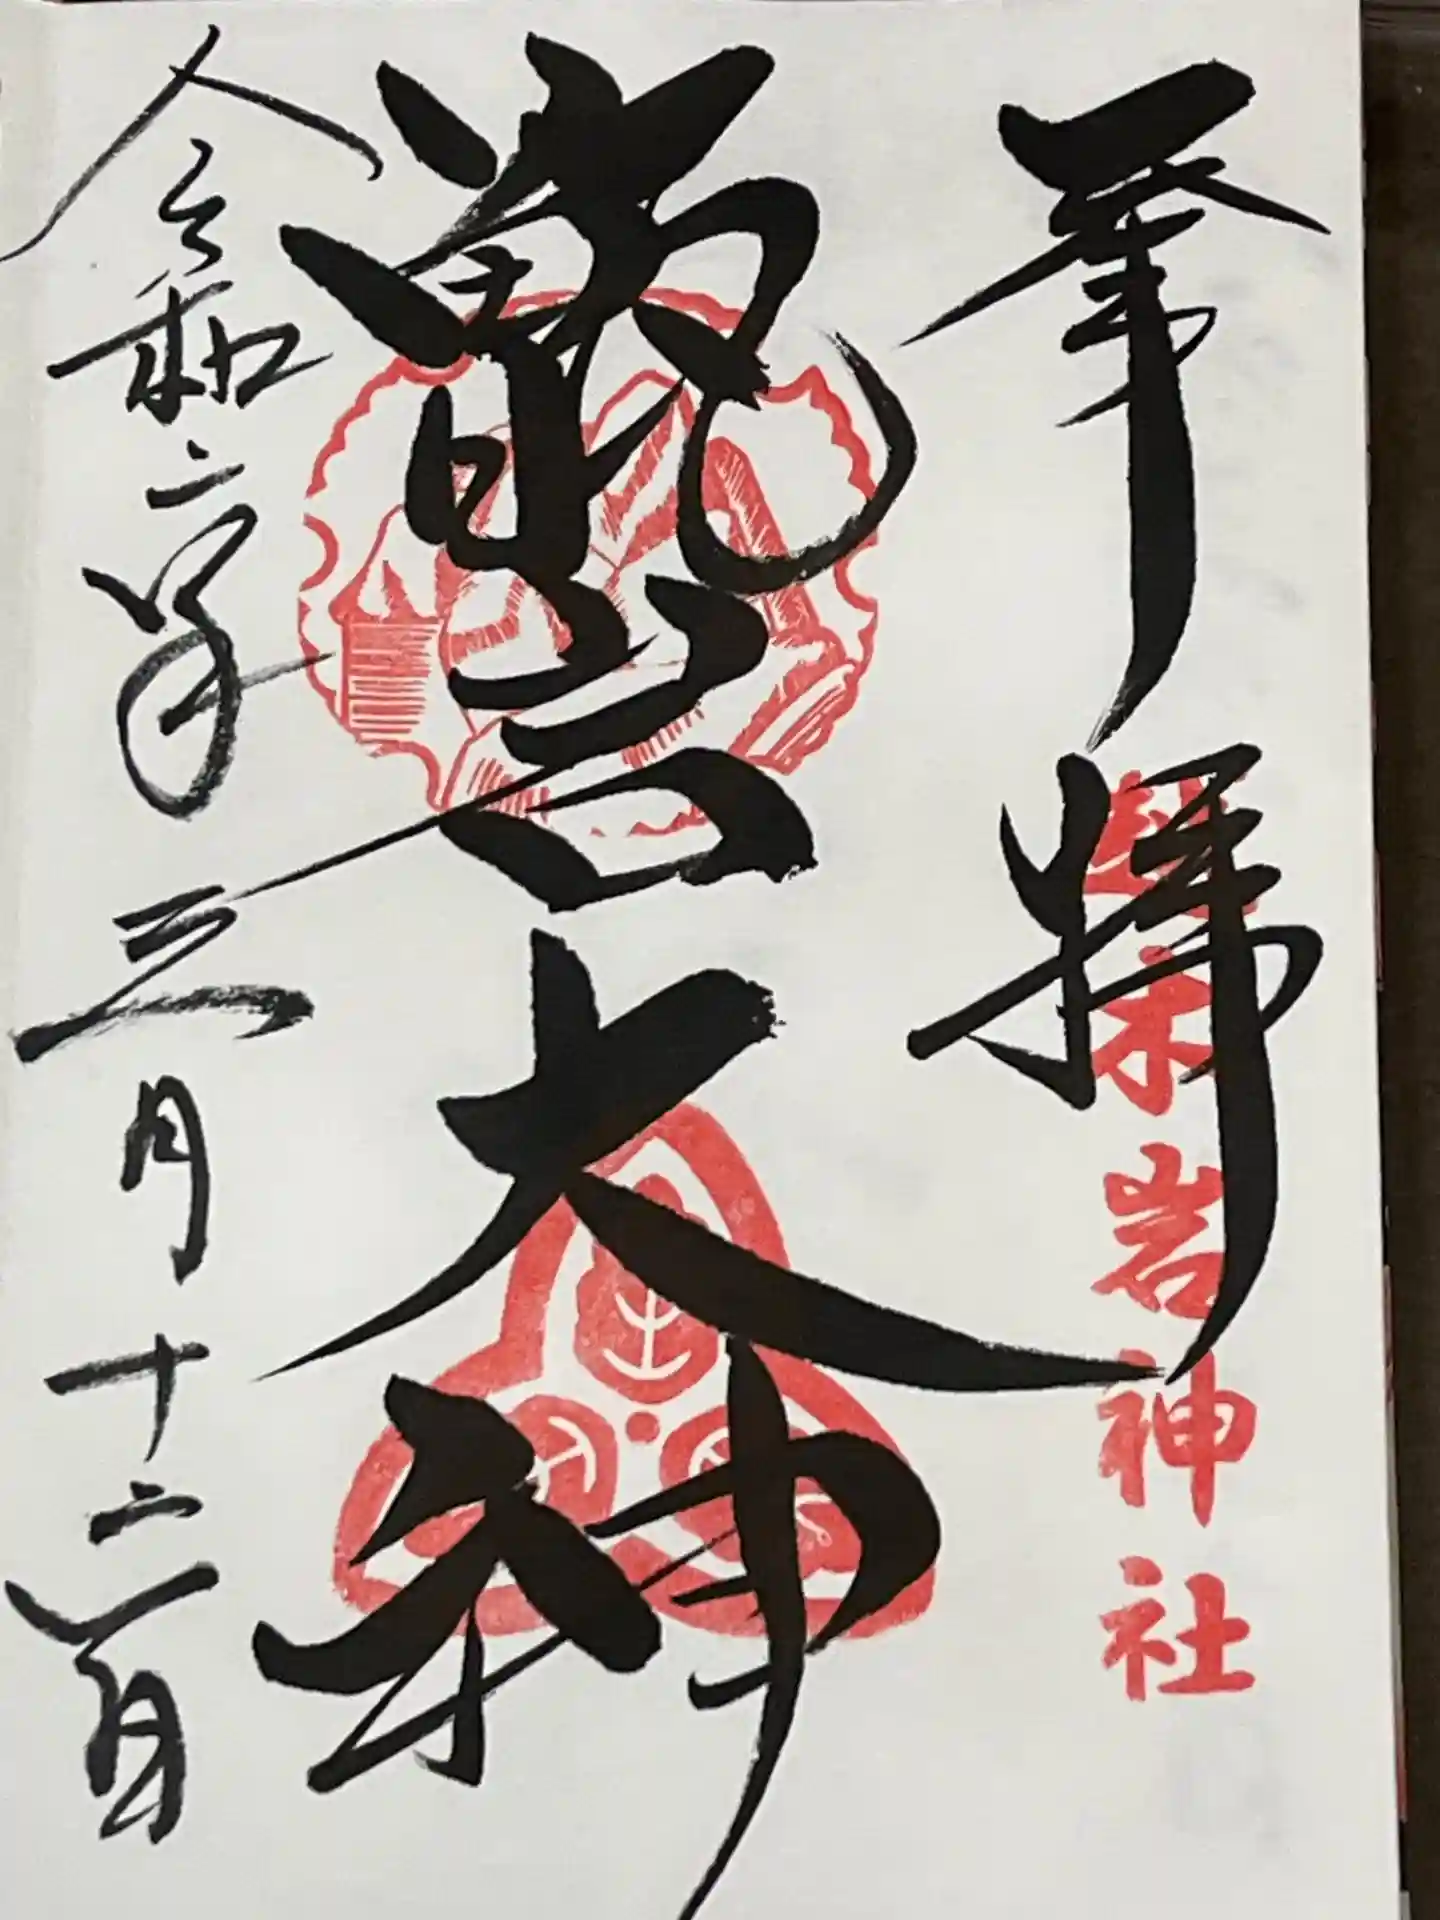 奉拝
越木岩神社
甑岩大神
令和二年三月十二日